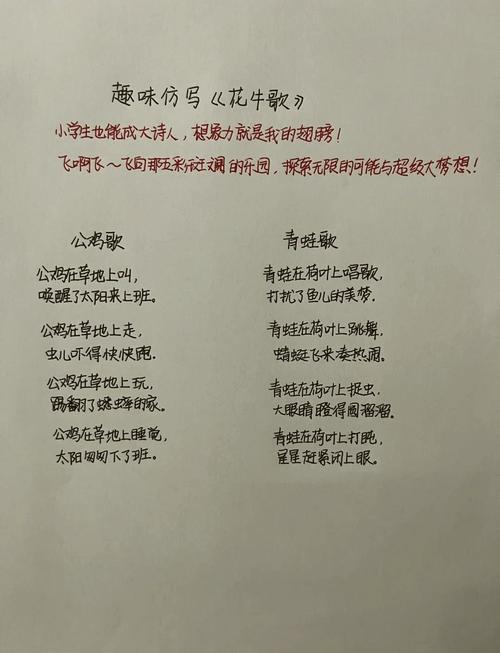 趣味仿写《花牛歌》
小学生也能成大诗人，想象力就是我的翅膀！
飞啊飞～飞向那五彩斑斓的乐园，探索无限的可能与超级大梦想！
公鸡歌
公鸡在草地上叫，
唤醒了太阳来上班。
公鸡在草地上走，
虫儿吓得快快跑。
公鸡在草地上玩，
踢翻了蟋蟀的家。
公鸡在草地上睡觉，
太阳匆匆下了班。
青蛙歌
青蛙在荷叶上唱歌，
打扰了鱼儿的美梦。
青蛙在荷叶上跳舞，
蜻蜓飞来凑热闹。
青蛙在荷叶上捉虫，
大眼睛瞪得圆溜溜。
青蛙在荷叶上打盹，
星星赶紧闭上眼。